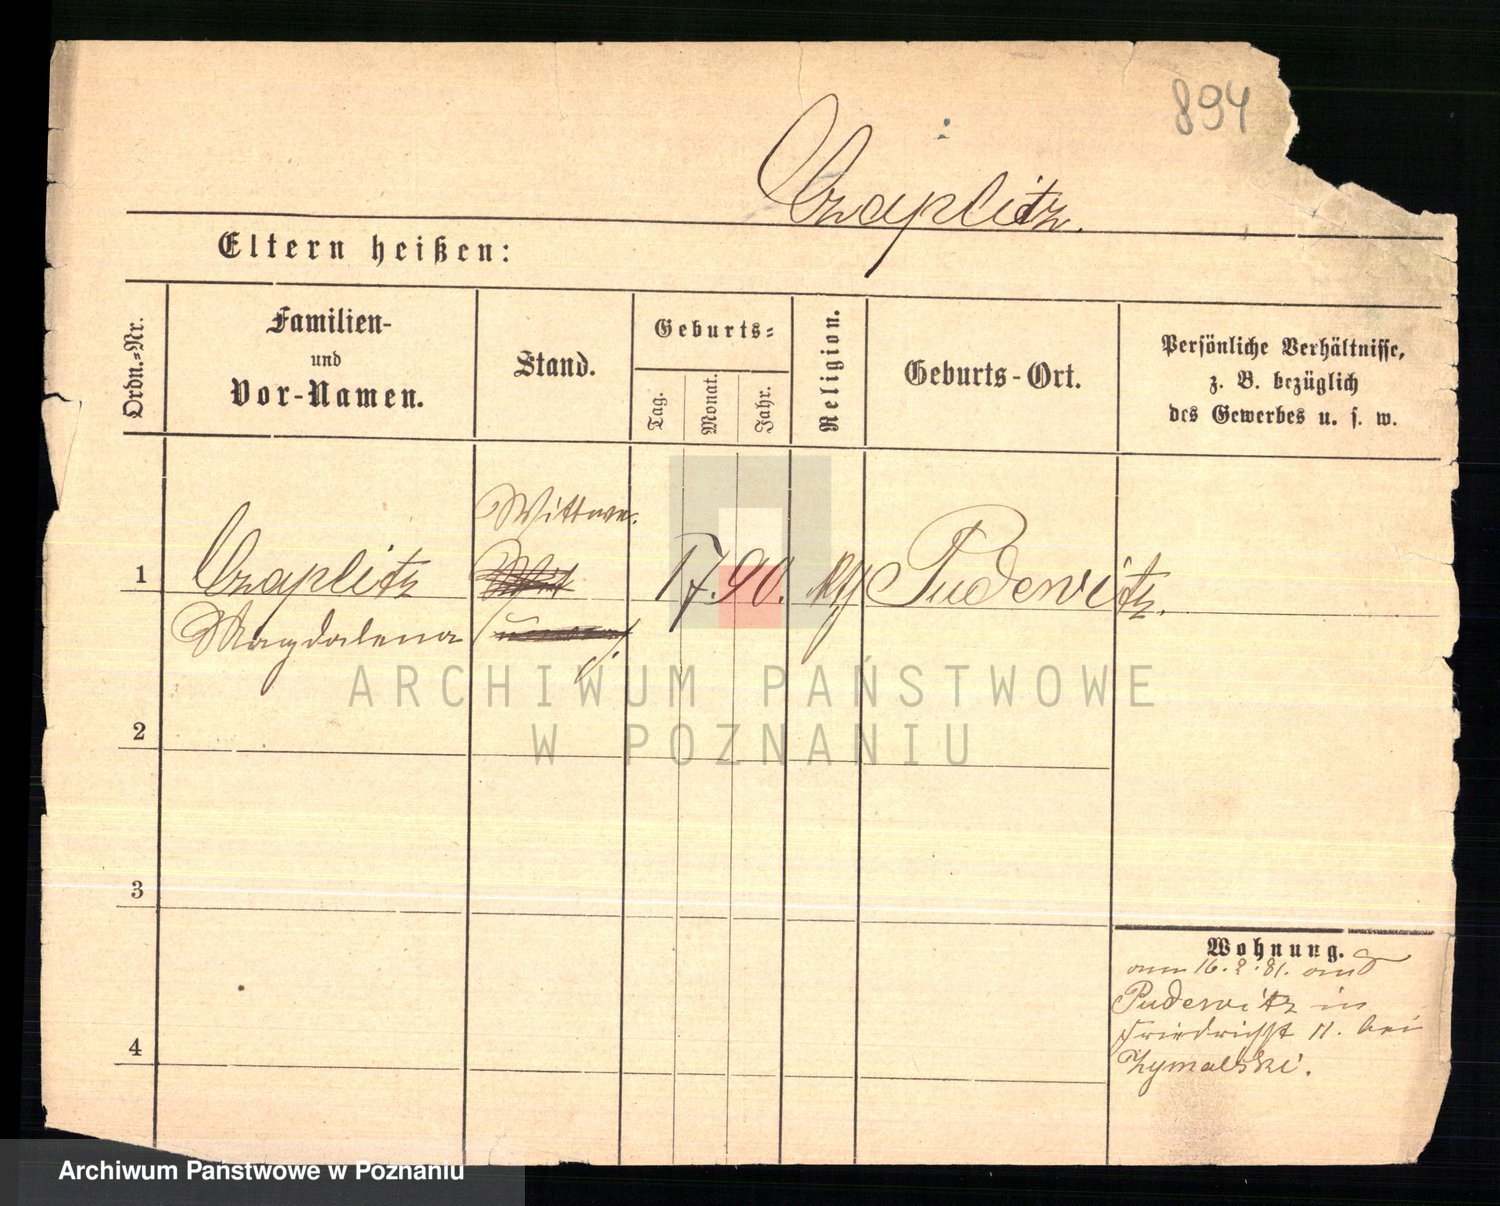 894
Czaplitz.
Eltern heißen:
Ordn.-Nr.
Familien-
und
Vor-Namen.
Stand.
Geburts-
Tag.
Monat.
Jahr.
Religion.
Geburts-Ort.
Persönliche Verhältnisse,
z. B. bezüglich
des Gewerbes u. s. w.
Wittwe.
1
Czaplitz
1790.
Pudewitz.
Magdalena
ARCHIWUM PAŃSTWOWE
W POZNANIU
2
3
Wohnung.
am 16. 2. 81. aus
Pudewitz in
Friedrichsst 11. bei
Zymalski.
4
Archiwum Państwowe w Poznaniu